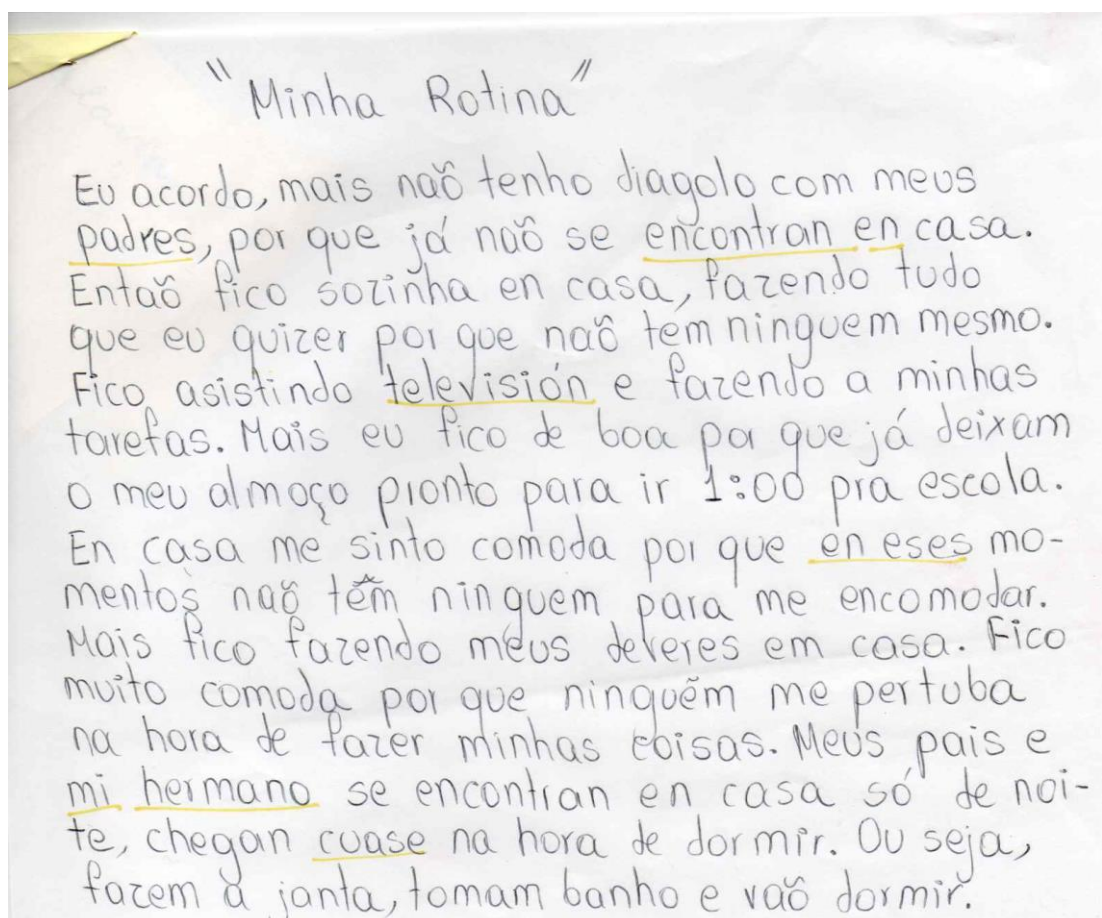 "Minha Rotina"
Eu acordo, mais naõ tenho diagolo com meus
padres, por que já naõ se encontran en casa.
Entaõ fico sozinha en casa, fazendo tudo
que eu quizer por que naõ tem ninguem mesmo.
Fico asistindo televisión e fazendo a minhas
tarefas. Mais eu fico de boa por que já deixam
o meu almoço pronto para ir 1:00 pra escola.
En casa me sinto comoda por que en eses mo-
mentos naõ têm ninguem para me encomodar.
Mais fico fazendo meus deveres em casa. Fico
muito comoda por que ninguém me pertuba
na hora de fazer minhas coisas. Meus pais e
mi hermano se encontran en casa só de noi-
te, chegan cuase na hora de dormir. Ou seja,
fazem a janta, tomam banho e vaõ dormir.